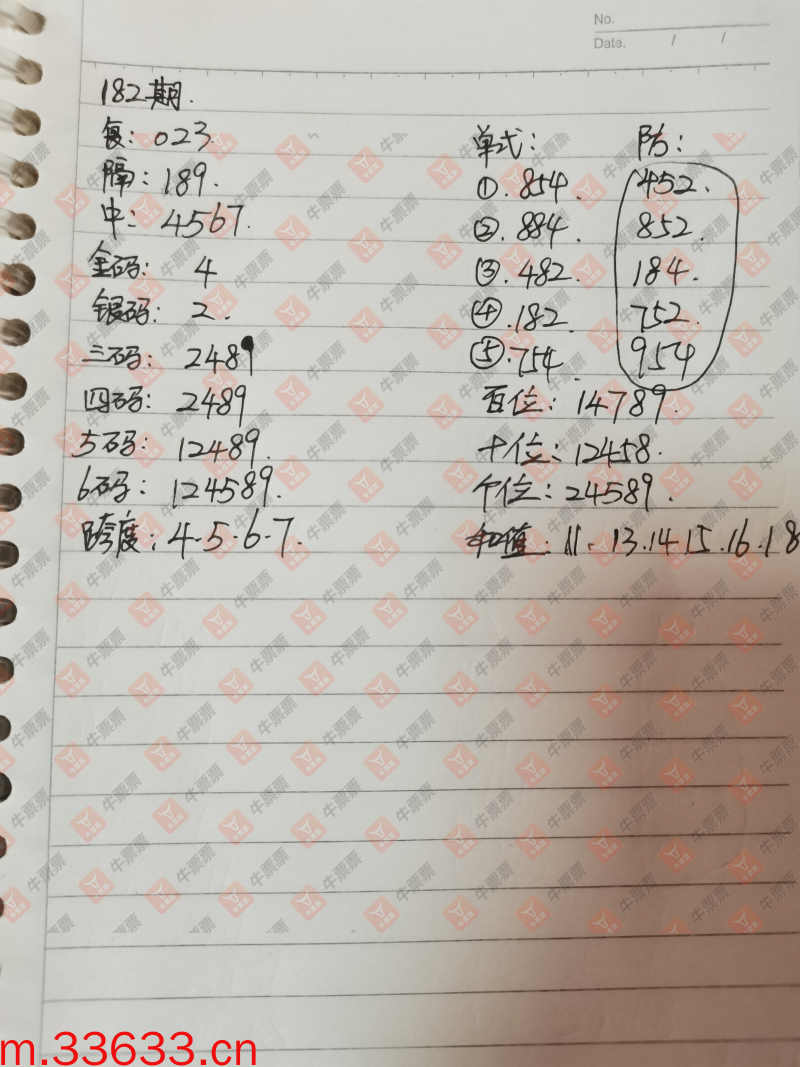 No.
Date. / /
182期.
复: 023
隔: 189.
中: 4567
金码: 4
银码: 2.
三码: 2489
四码: 2489
5码: 12489.
6码: 124589.
跨度: 4.5.6.7.
单式: 防:
①. 854. 452.
②. 884. 852.
③. 482. 184.
④. 182. 752.
⑤. 754. 954
百位: 14789.
十位: 12458.
个位: 24589.
和值: 11. 13.14.15.16.18
牛票票
m.33633.cn